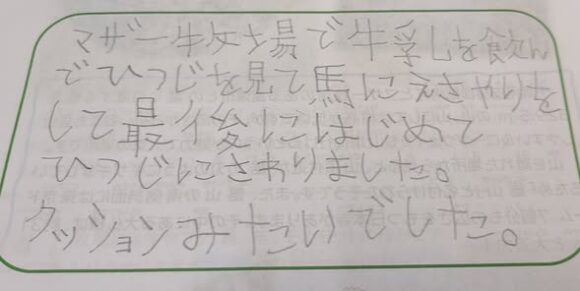 マザー牧場で牛乳を飲ん
でひつじを見て馬にえさやりを
して最後にはじめて
ひつじにさわりました。
クッションみたいでした。